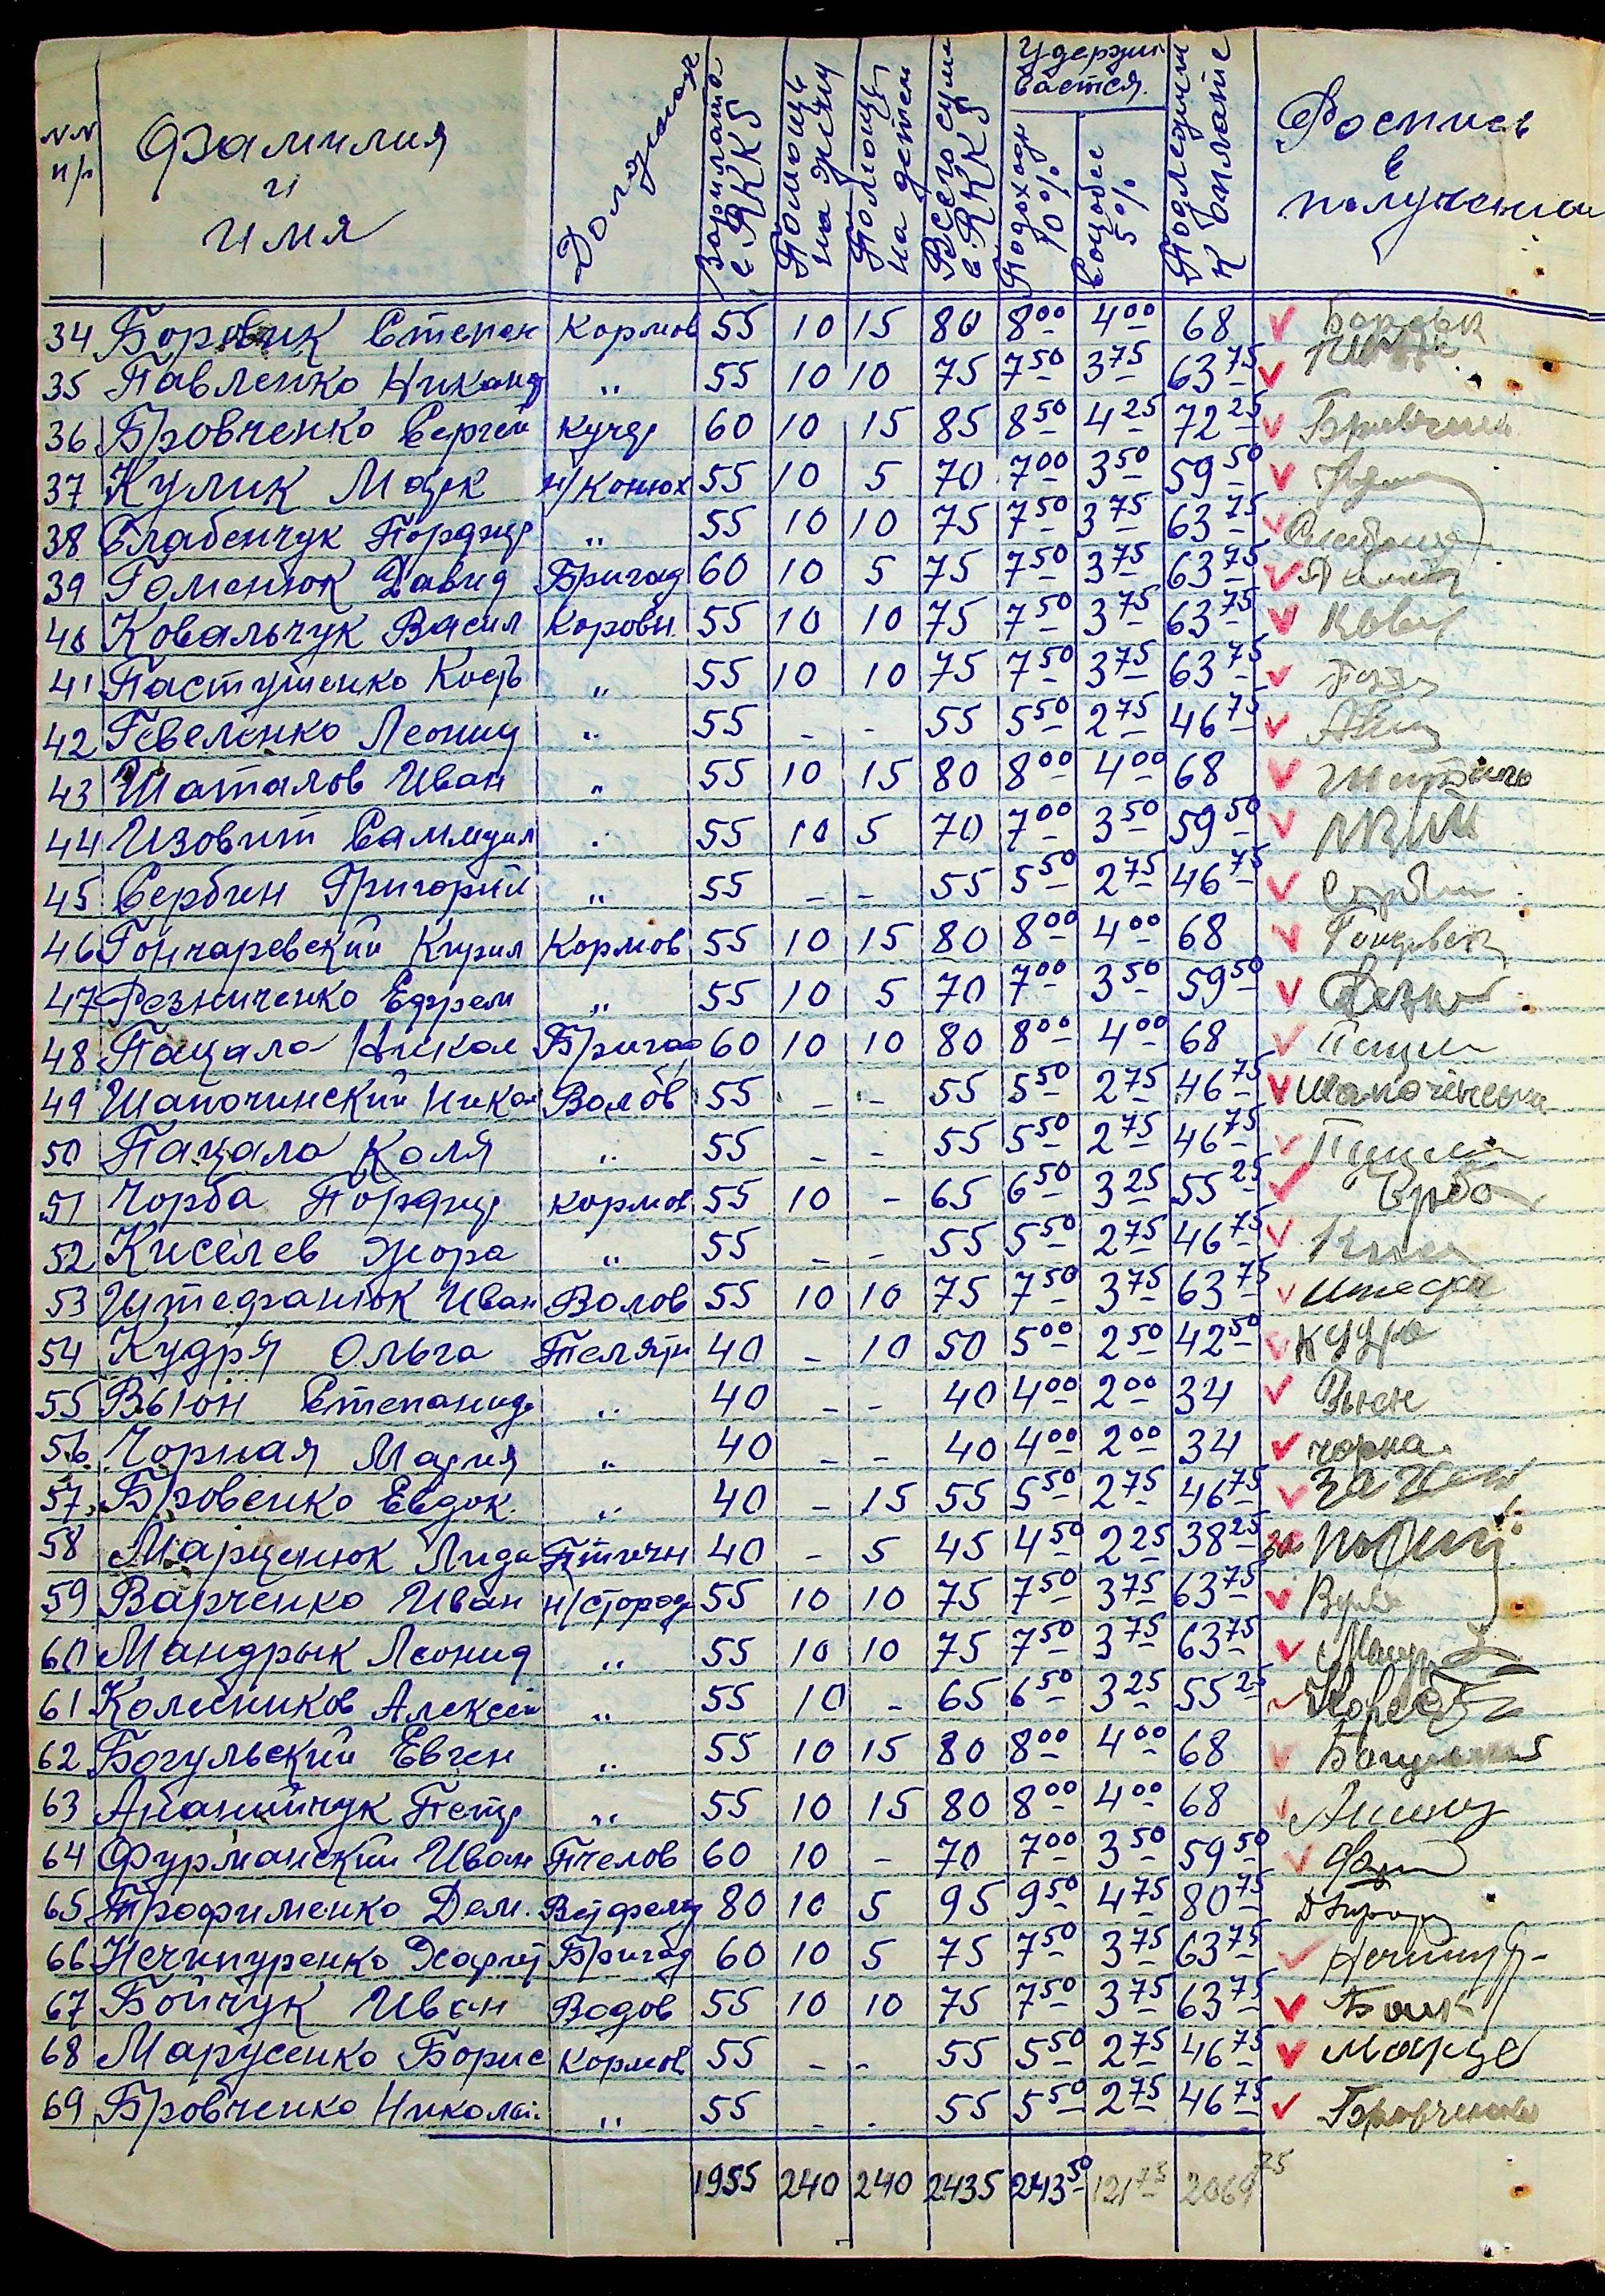 NN п/п Фамилия и имя Должност Зарплата с.ЯККS Помощь на жену Помощь на детей Всего сум с.ЯККS Удержи вается. Подоход 10% Соцобес 5% Подлежит к оплате Роспись в получении
34 Боровик Степан Кормов 55 10 15 80 8 00 4 00 68
35 Павленко Никанд „ 55 10 10 75 7 50 3 75 63 75
36 Бровченко Сергей Кучер 60 10 15 85 8 50 4 25 72 25
37 Кулик Марк н/конюх 55 10 5 70 7 00 3 50 59 50
38 Слабенчук Порфир „ 55 10 10 75 7 50 3 75 63 75
39 Гоменюк Давид Бригад 60 10 5 75 7 50 3 75 63 75
40 Ковальчук Васил Коровн. 55 10 10 75 7 50 3 75 63 75
41 Пастушенко Кость „ 55 10 10 75 7 50 3 75 63 75
42 Гевеленко Леонид „ 55 - - 55 5 50 2 75 46 75
43 Шаталов Иван „ 55 10 15 80 8 00 4 00 68
44 Изовит Саммуил „ 55 10 5 70 7 00 3 50 59 50
45 Сербин Григорий „ 55 - - 55 5 50 2 75 46 75
46 Гончаревский Кирил Кормов 55 10 15 80 8 00 4 00 68
47 Резниченко Ефрем „ 55 10 5 70 7 00 3 50 59 50
48 Пацала Никол Бригад 60 10 10 80 8 00 4 00 68
49 Шапочинский Никол Волов 55 - - 55 5 50 2 75 46 75
50 Пацала Коля „ 55 - - 55 5 50 2 75 46 75
51 Чорба Порфир кормов 55 10 - 65 6 50 3 25 55 25
52 Киселев Жора „ 55 - - 55 5 50 2 75 46 75
53 Штефанюк Иван Волов 55 10 10 75 7 50 3 75 63 75
54 Кудря Ольга Телятн 40 - 10 50 5 00 2 50 42 50 Кудря
55 Вьюн Степанида „ 40 - - 40 4 00 2 00 34
56 Чорная Мария „ 40 - - 40 4 00 2 00 34 чорна
57 Бровенко Евдок. „ 40 - 15 55 5 50 2 75 46 75
58 Марценюк Лида Птичн 40 - 5 45 4 50 2 25 38 25
59 Варченко Иван н/сторож 55 10 10 75 7 50 3 75 63 75
60 Мандрык Леонид „ 55 10 10 75 7 50 3 75 63 75
61 Колесников Алексей „ 55 10 - 65 6 50 3 25 55 25
62 Богульский Евген „ 55 10 15 80 8 00 4 00 68
63 Ананийчук Петр „ 55 10 15 80 8 00 4 00 68
64 Фурманский Иван Пчелов 60 10 - 70 7 00 3 50 59 50
65 Трофименко Дем. Ветфелд 80 10 5 95 9 50 4 75 80 75
66 Нечипуренко Харит Бригад 60 10 5 75 7 50 3 75 63 75
67 Бойчук Иван Водов 55 10 10 75 7 50 3 75 63 75
68 Марусенко Борис Кормов 55 - - 55 5 50 2 75 46 75
69 Бровченко Николай „ 55 - - 55 5 50 2 75 46 75 Бровченко
1955 240 240 2435 243 50 121 75 2069 75